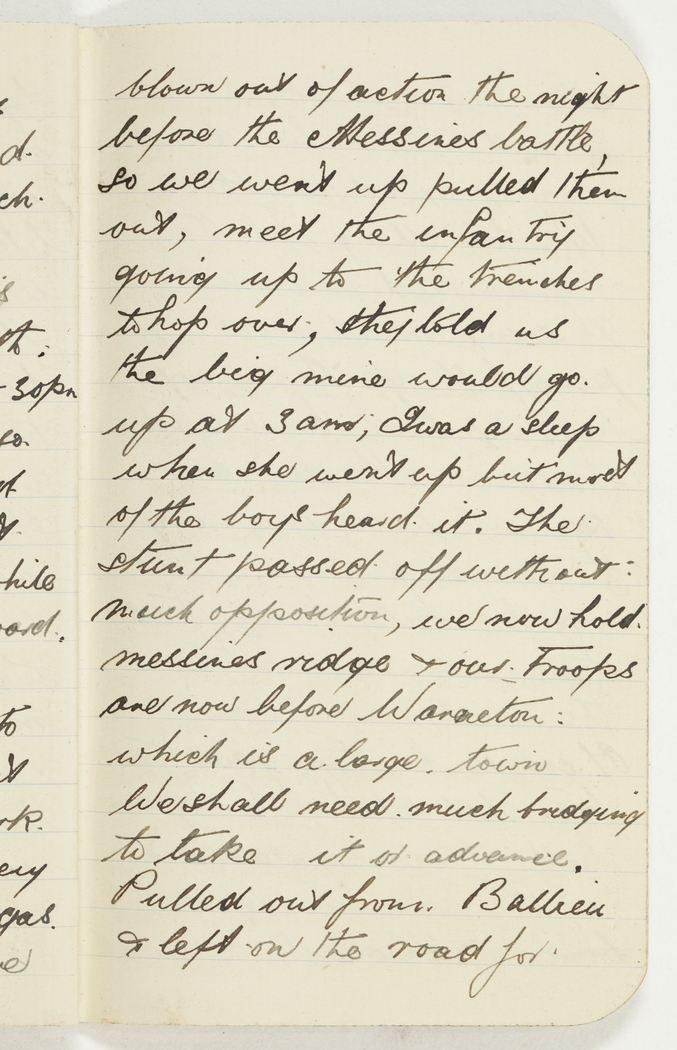 blown out of action the night
before the Messines battle,
so we went up pulled them
out, meet the infantry
going up to the trenches
to hop over, they told us
the big mine would go.
up at 3 am, I was a sleep
when she went up but most
of the boys heard it. The
stunt passed off without:
much opposition, we now hold.
messines ridge & our Troops
are now before Warneton:
which is a large town
We shall need much bridging
to take it or advance.
Pulled out from
& left on the road for
d.
ch.
s
th:
-30pm
so.
hile
oard.
to
rk.
ery
gas.